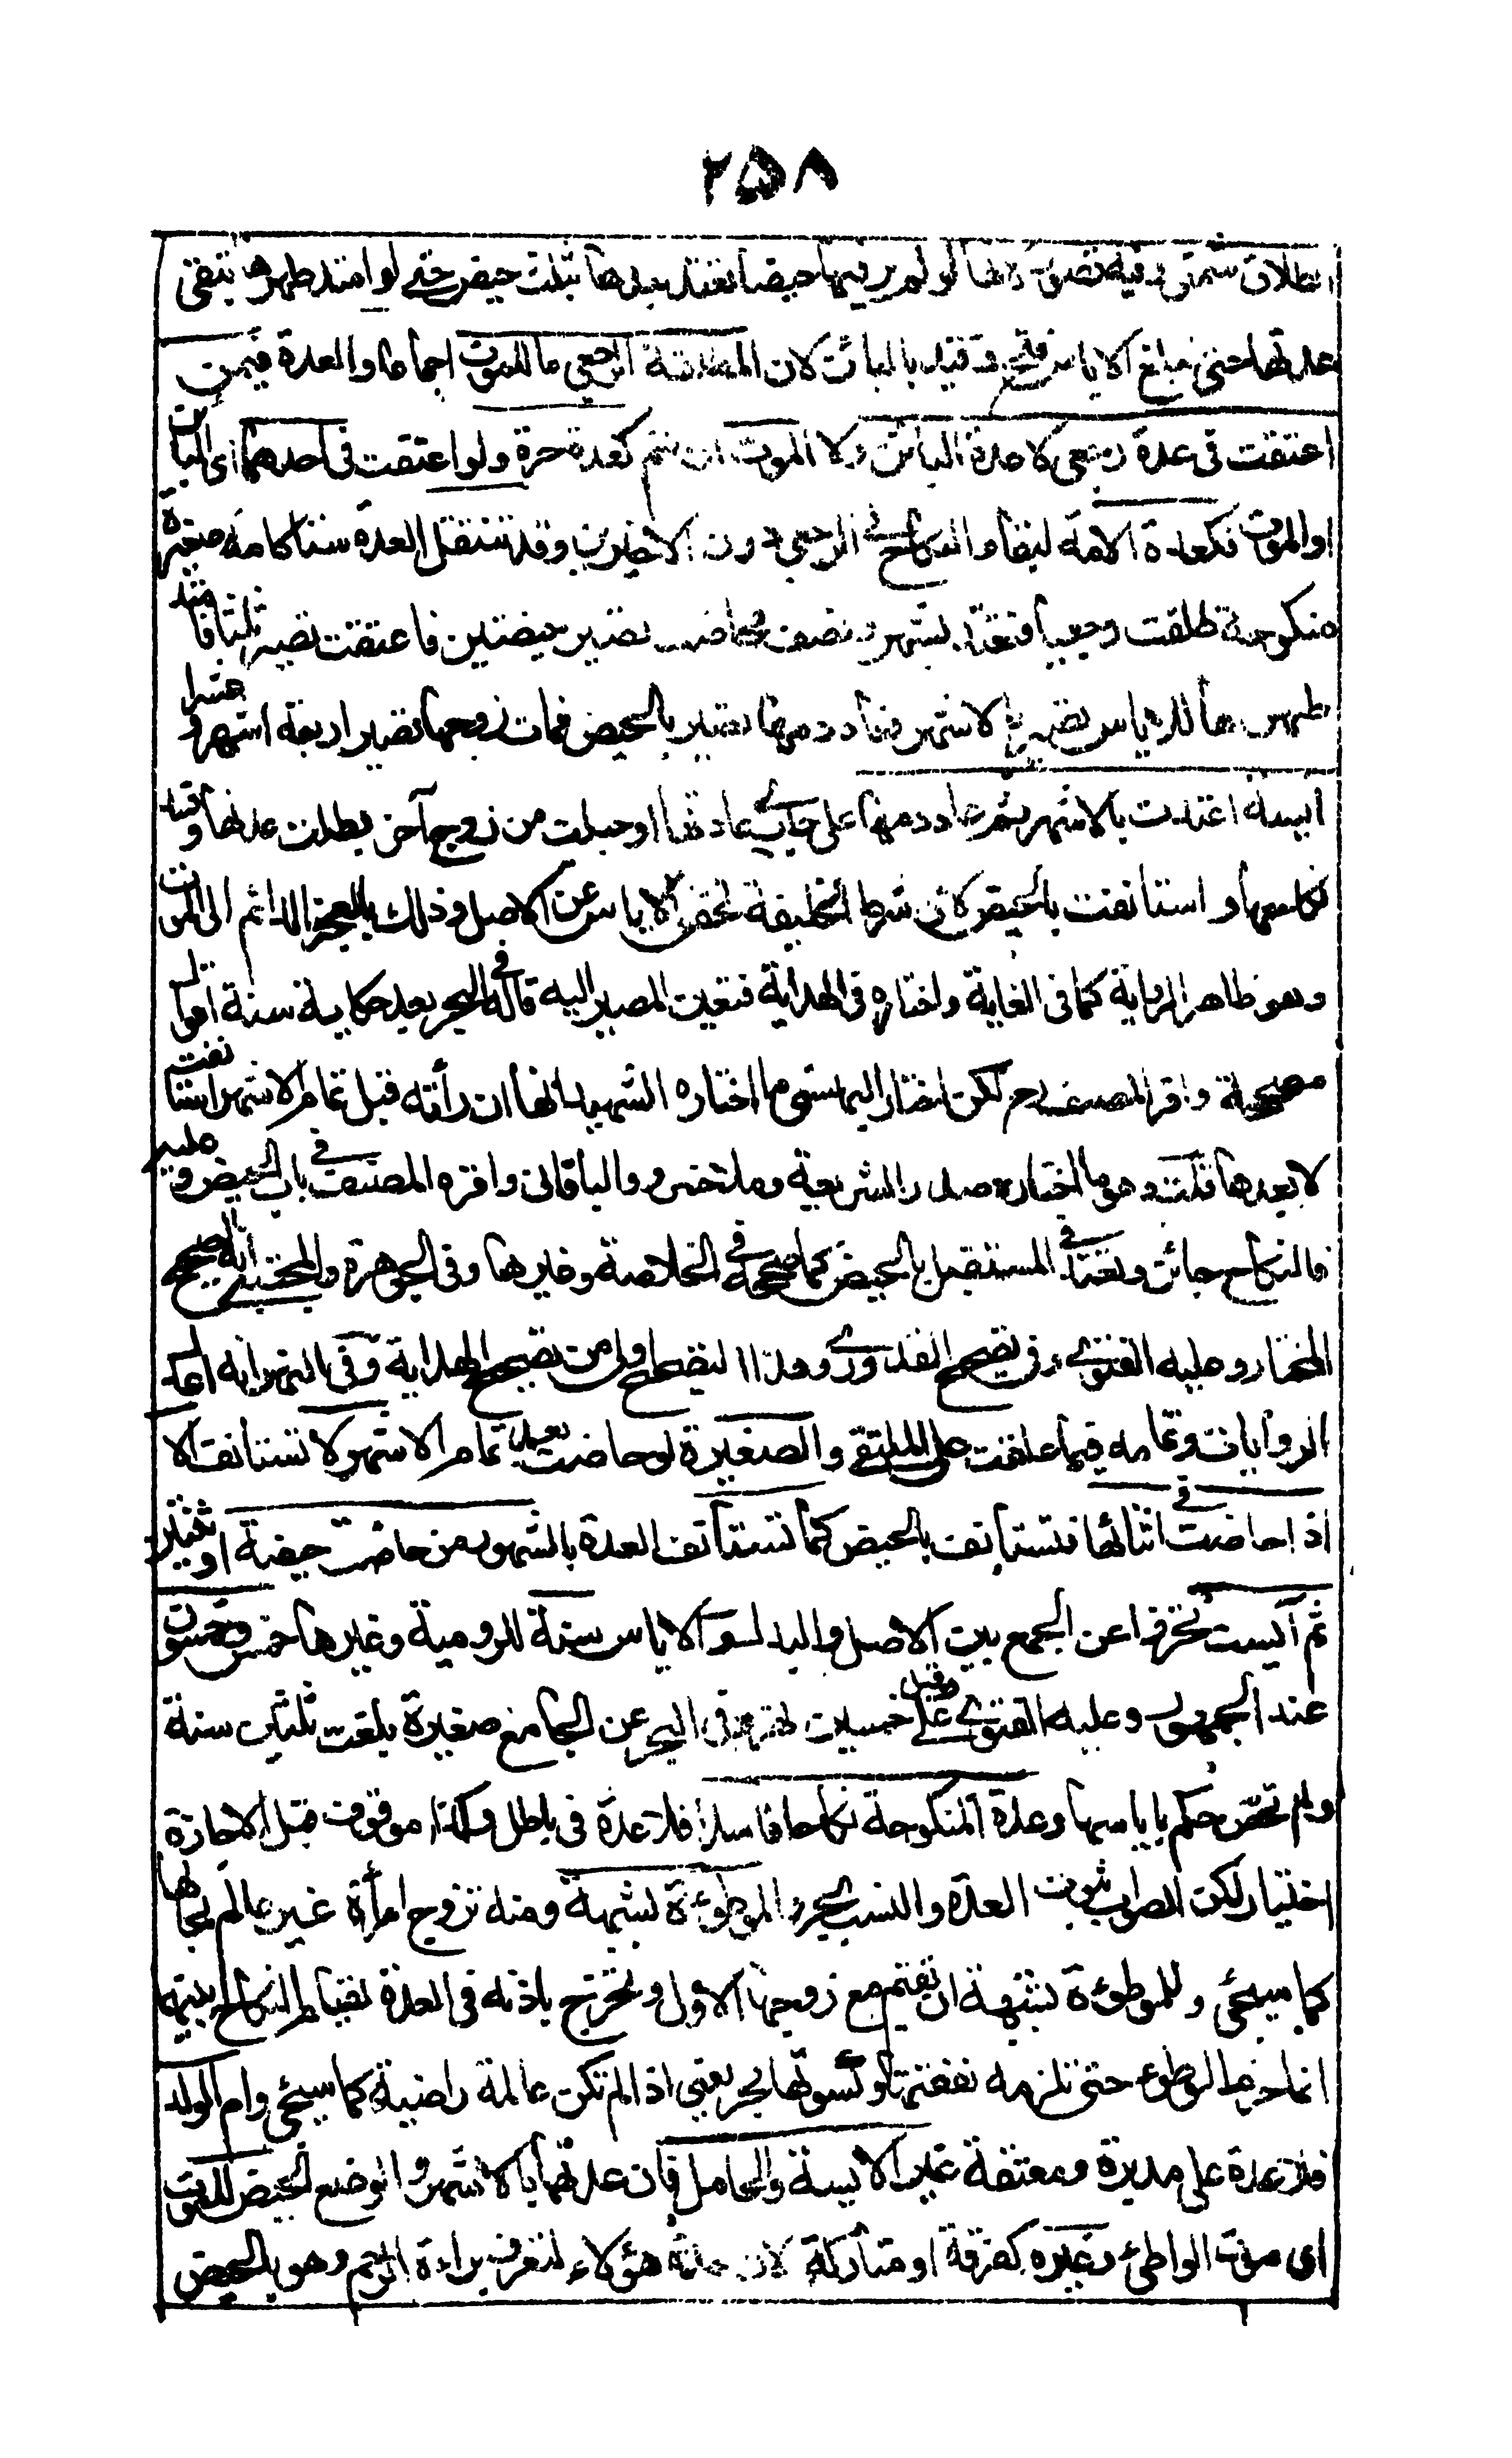 ٢٥٨
الطلاق شمني وفيه قصور لانها لو لم تر فيها حيضا تعتد بعدها بثلث حيض حتى لو امتد طهرها تبقى
عدتها حتى تبلغ الاياس فتح وقيد بالبائن لان المطلقة الرجعي ما للموت اجماعا والعدة فيمن
اعتقت في عدة رجعي لا عدة البائن ولا الموت ان تتم كعدة حرة ولو اعتقت في احدهما اى البائن
او الموت فكعدة الامة لبقاء النكاح في الرجعي دون الاخيرين وقد تنتقل العدة ستا كامة صغيرة
منكوحة طلقت رجعيا فتعتد بشهر ونصف فحاضت تصير حيضتين فاعتقت تصير ثلثا فامتد
طهرها للاياس تصير بالاشهر فعاد دمها تصير بالحيض فمات زوجها تصير اربعة اشهر وعشرا
آيسة اعتدت بالاشهر ثم عاد دمها على جارى عادتها او حبلت من زوج آخر بطلت عدتها وفسد
نكاحها واستأنفت بالحيض لان شرط الخليفة تحقق الاياس عن الاصل وذلك بالعجز الدائم الى الموت
وهو ظاهر الرواية كما فى الغاية واختاره فى الهداية فتعين المصير اليه قاله فى البحر بعد حكاية ستة اقوال
مصححة واقره المصنف رحم لكن اختار البهنسى ما اختاره الشهيد انها ان رأته قبل تمام الاشهر استأنفت
لا بعدها قلت وهو ما اختاره صدر الشريعة وملا خسرو والباقانى واقره المصنف فى باب الحيض وعليه
فالنكاح جائز وتعتد فى المستقبل بالحيض كما صححه فى الخلاصة وغيرها وفى الجوهرة والمجتبى انه الصحيح
المختار وعليه الفتوى وفى تصحيح القدورى وهذا التصحيح اولى من تصحيح الهداية وفى النهر انه اعدل
الروايات وتمامه فيما علقته على الملتقى والصغيرة لو حاضت بعد تمام الاشهر لا تستأنف الا
اذا حاضت فى اثنائها فتستأنف بالحيض كما تستأنف العدة بالشهور من حاضت حيضة او ثنتين
ثم آيست تحرزا عن الجمع بين الاصل والبدل والاياس سنة للرومية وغيرها خمس وخمسون
عند الجمهور وعليه الفتوى وقيل على خمسين نهر وفى البحر عن الجامع صغيرة بلغت ثلثين سنة
ولم تحض حكم باياسها وعدة المنكوحة نكاحا فاسدا فلا عدة فى باطل وكذا موقوف قبل الاجازة
اختيار لكن الصواب ثبوت العدة والنسب بحر والموطوءة بشبهة ومنه تزوج امرأة غير عالم بحالها
كما سيجئ وللموطوءة بشبهة ان تقيم مع زوجها الاول وتخرج باذنه فى العدة لقيام النكاح بينهما
انما حرم الوطوء حتى تلزمه نفقتها وكسوتها بحر يعنى اذا لم تكن عالمة راضية كما سيجئ وام الولد
فلا عدة على مدبرة ومعتقة غير الآيسة والحامل فان عدتهما بالاشهر والوضع الحيض للموت
اى موت الواطئ وغيره كفرقة او متاركة لان عدة هؤلاء لتعرف براءة الرحم وهو بالحيض